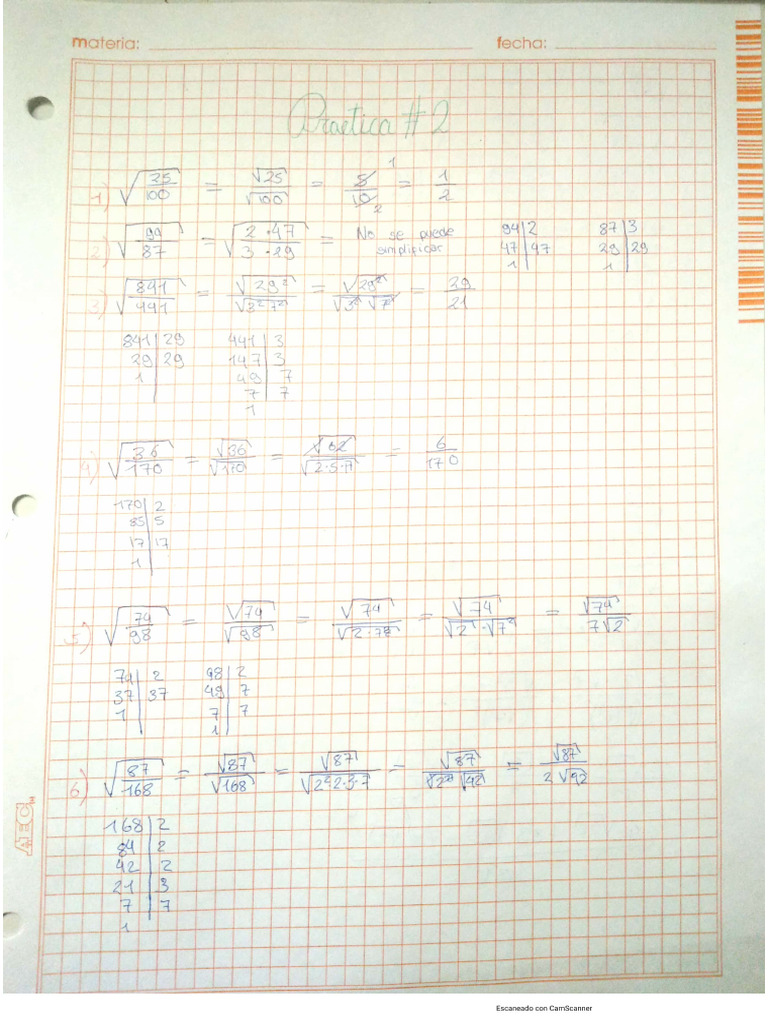 materia: fecha:
Practica # 2
1) √(25/100) = √25/√100 = 5/10 1 2 = 1/2
2) √(94/87) = √(2·47/3·29) = No se puede simplificar 94|2 87|3
47|47 29|29
1| 1|
3) √(841/441) = √29²/√3²7² = √29²/√3² √7² = 29/21
841|29 441|3
29|29 147|3
1| 49|7
7|7
1
4) √(36/170) = √36/√170 = √62/√2·5·17 = 6/170
170|2
85|5
17|17
1|
5) √(74/98) = √74/√98 = √74/√2·7² = √74/√2·√7² = √74/7√2
74|2 98|2
37|37 49|7
1| 7|7
1|
6) √(87/168) = √87/√168 = √87/√2²·2·3·7 = √87/√2² √42 = √87/2√42
168|2
84|2
42|2
21|3
7|7
1
Escaneado con CamScanner